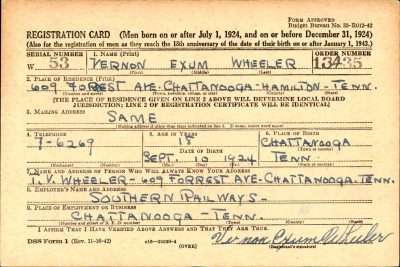 FORM APPROVED
Budget Bureau No. 33-R012-42
REGISTRATION CARD (Men born on or after July 1, 1924, and on or before December 31, 1924)
(Also for the registration of men as they reach the 18th anniversary of the date of their birth on or after January 1, 1943.)
SERIAL NUMBER 1. NAME (Print) ORDER NUMBER
W 53 VERNON EXUM WHEELER 13435
(First) (Middle) (Last)
2. PLACE OF RESIDENCE (Print)
609 FOREST AVE. CHATTANOOGA-HAMILTON-TENN.
(Number and street) (Town, township, village, or city) (County) (State)
[THE PLACE OF RESIDENCE GIVEN ON LINE 2 ABOVE WILL DETERMINE LOCAL BOARD
JURISDICTION; LINE 2 OF REGISTRATION CERTIFICATE WILL BE IDENTICAL]
3. MAILING ADDRESS
SAME
[Mailing address if other than place indicated on line 2. If same, insert word same]
4. TELEPHONE 5. AGE IN YEARS 6. PLACE OF BIRTH
7-6269 18 CHATTANOOGA
DATE OF BIRTH (Town or county)
SEPT. 10 1924 TENN.
(Exchange) (Number) (Mo.) (Day) (Yr.) (State or country)
7. NAME AND ADDRESS OF PERSON WHO WILL ALWAYS KNOW YOUR ADDRESS
T. V. WHEELER-609 FORREST AVE. CHATTANOOGA. TENN.
8. EMPLOYER'S NAME AND ADDRESS
SOUTHERN RAILWAYS-
9. PLACE OF EMPLOYMENT OR BUSINESS
CHATTANOOGA-TENN.
(Number and street or R. F. D. number) (Town) (County) (State)
I AFFIRM THAT I HAVE VERIFIED ABOVE ANSWERS AND THAT THEY ARE TRUE.
DSS Form 1 (Rev. 11-16-42) (OVER) Vernon Exum Wheeler
(Registrant's signature)